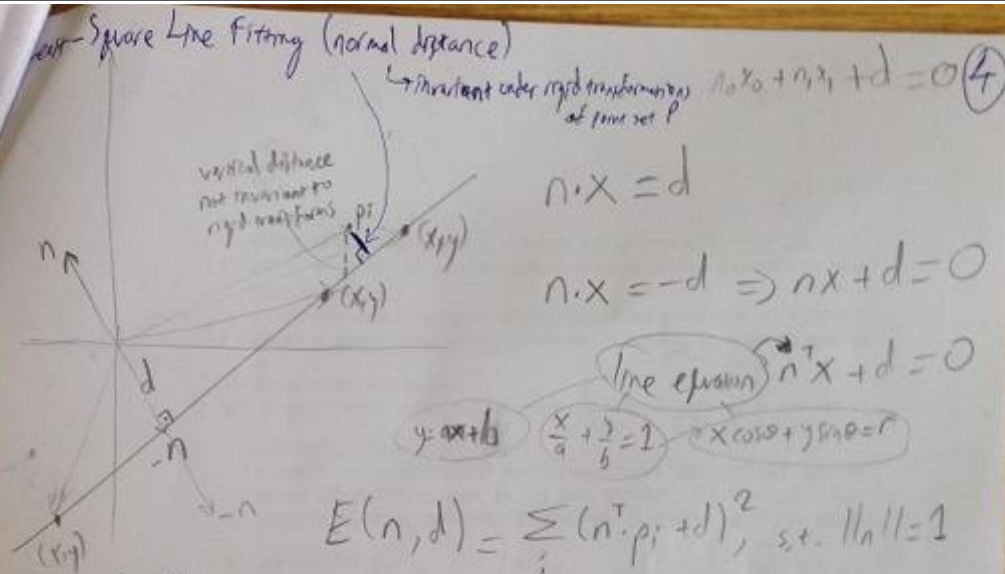 Least-Square Line Fitting (normal distance)
↳ invariant under rigid transformations
of point set P
n₀x₀ + n₁x₁ + d = 0
4
vertical distance
not invariant to
rigid transforms
pi
(x,y)
(x,y)
n
d
-n
-n
(x,y)
n·x = d
n·x = -d ⇒ nx + d = 0
line equation
nᵀx + d = 0
y = ax + b
x/a + y/b = 1
x cosθ + y sinθ = r
E(n,d) = Σᵢ (nᵀ·pᵢ + d)², s.t. ||n|| = 1